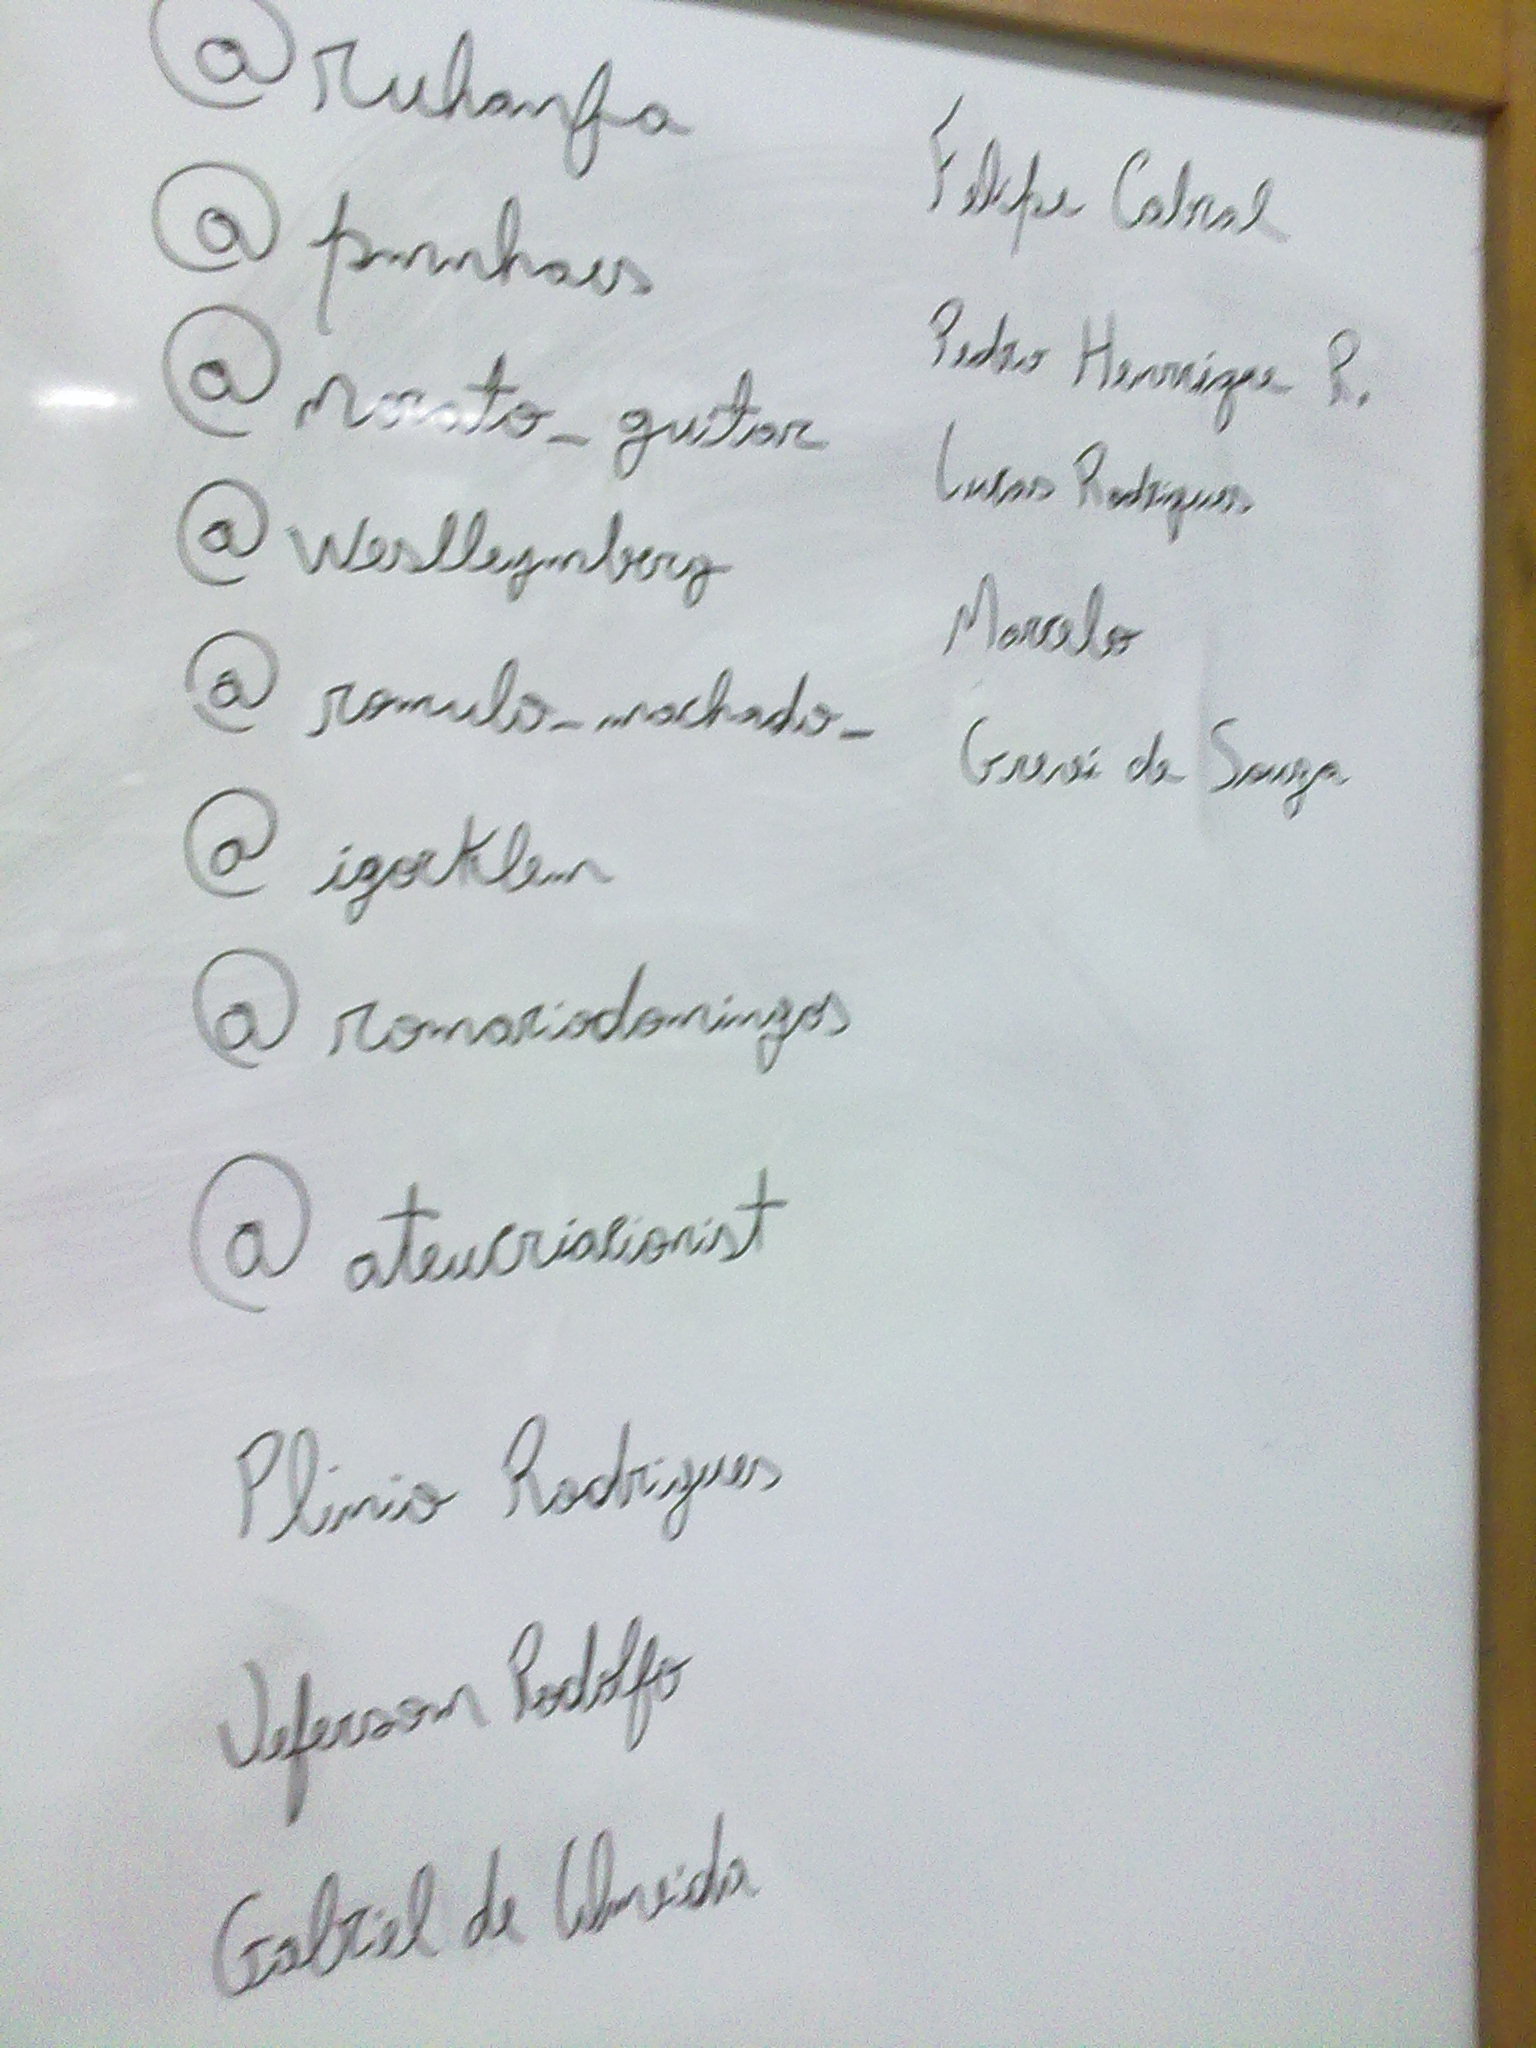 @ruhanfa
@pinnhaes
@morato_guitar
@weslleymberg
@romulo_machado_
@igorklein
@romariodomingos
@ateucriacionist
Plinio Rodrigues
Jeferson Rodolfo
Gabriel de Almeida
Felipe Cabral
Pedro Henrique R.
Lucas Rodrigues
Marcelo
de Souza